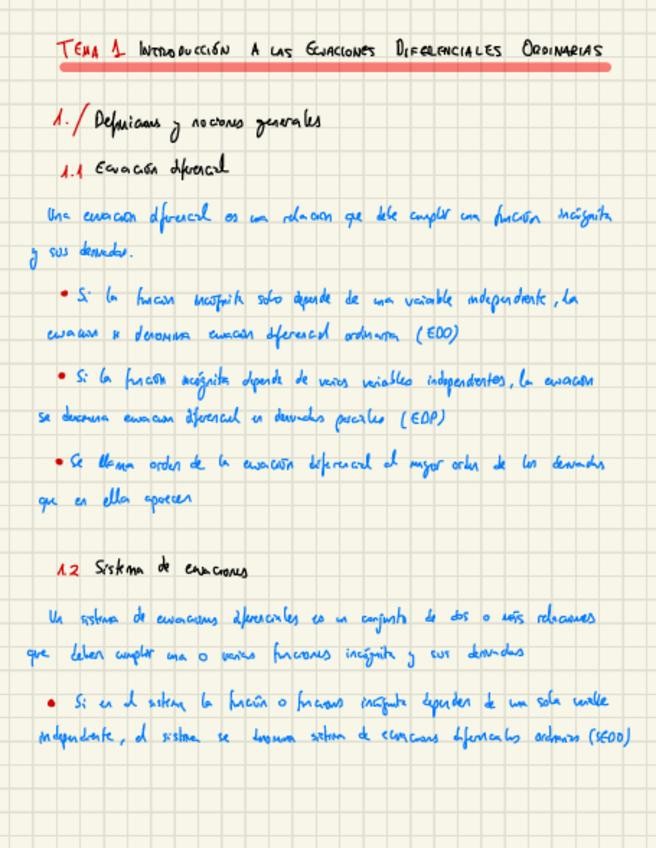 TEMA 1 INTRODUCCIÓN A LAS ECUACIONES DIFERENCIALES ORDINARIAS
1./ Definiciones y nociones generales
1.1 Ecuación diferencial
Una ecuación diferencial es una relación que debe cumplir una función incógnita
y sus derivadas.
• Si la función incógnita solo depende de una variable independiente, la
ecuación se denomina ecuación diferencial ordinaria (EDO)
• Si la función incógnita depende de varias variables independientes, la ecuación
se denomina ecuación diferencial en derivadas parciales (EDP)
• Se llama orden de la ecuación diferencial al mayor orden de las derivadas
que en ella aparecen
1.2 Sistema de ecuaciones
Un sistema de ecuaciones diferenciales es un conjunto de dos o más relaciones
que deben cumplir una o varias funciones incógnita y sus derivadas
• Si en el sistema la función o funciones incógnita dependen de una sola variable
independiente, el sistema se denomina sistema de ecuaciones diferenciales ordinarias (SEDO)